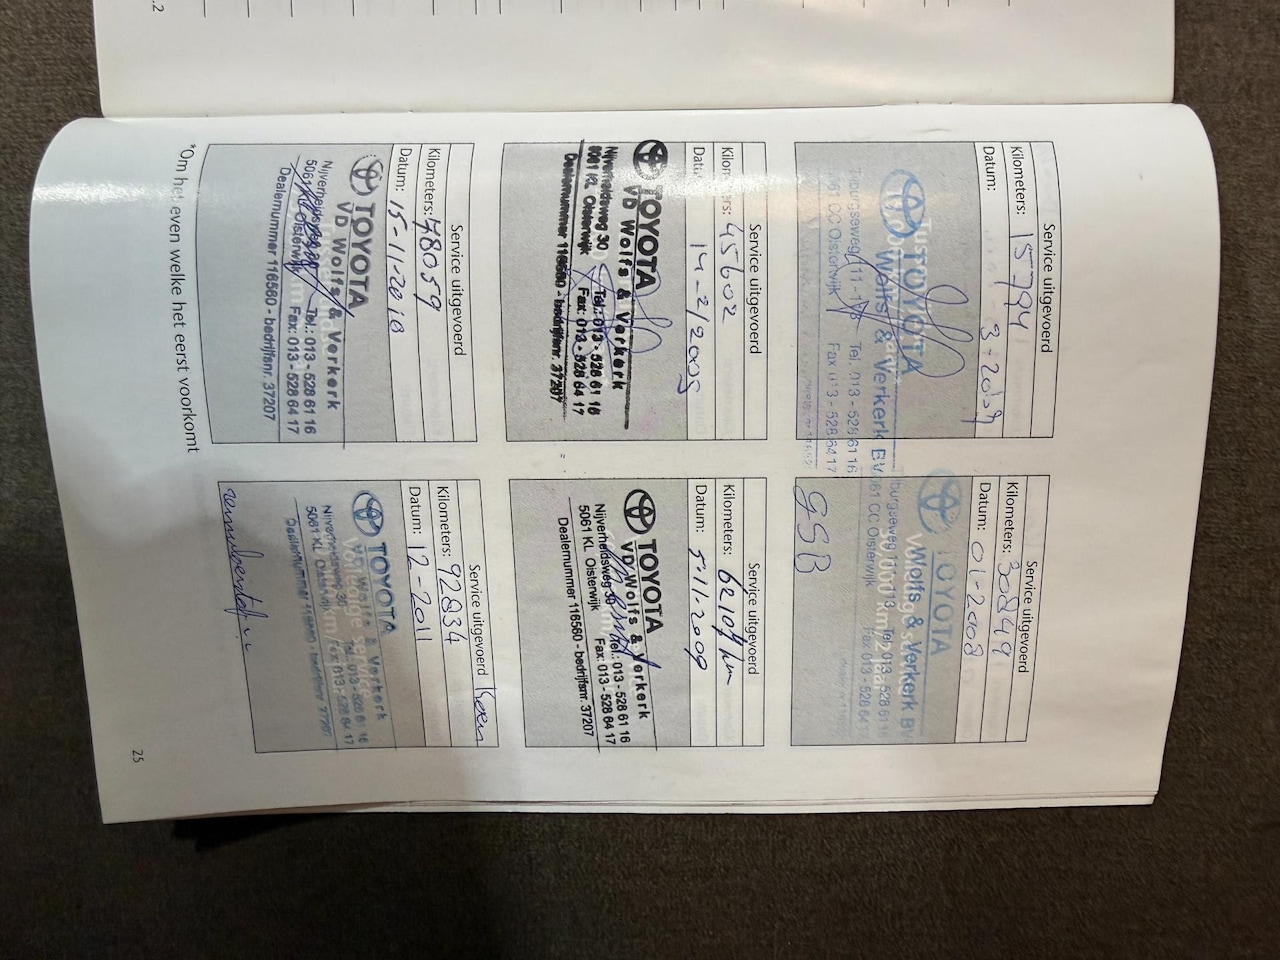 Service uitgevoerd
Kilometers: 15794
Datum:
TOYOTA
Wolfs & Verkerk BV
Tel. 013 - 528 61 16
5061 CC Oisterwijk Fax 013 - 528 64 17
Service uitgevoerd
Kilometers: 30849
Datum: 01-2008
TOYOTA
Wolfs & Verkerk BV
Tel. 013 - 528 61 16
5061 CC Oisterwijk
GSB
Service uitgevoerd
Kilometers: 45602
Datum: 14-2/2009
TOYOTA
VD Wolfs & Verkerk
Nijverheidsweg 30 Tel.: 013 - 528 61 16
5061 KL Oisterwijk Fax: 013 - 528 64 17
Dealernummer 116560 - bedrijfsnr. 37207
Service uitgevoerd
Kilometers: 62109 km
Datum: 5-11-2009
TOYOTA
VD Wolfs & Verkerk
Nijverheidsweg 30 Tel.: 013 - 528 61 16
5061 KL Oisterwijk Fax: 013 - 528 64 17
Dealernummer 116560 - bedrijfsnr. 37207
Service uitgevoerd
Kilometers: 78059
Datum: 15-11-2010
TOYOTA
VD Wolfs & Verkerk
Tel.: 013 - 528 61 16
Oisterwijk Fax: 013 - 528 64 17
Dealernummer 116560 - bedrijfsnr. 37207
Service uitgevoerd
Kilometers: 92834
Datum: 12-2011
TOYOTA
Wolfs & Verkerk
Nijverheidsweg 30 Tel.: 013 - 528 61 16
5061 KL Oisterwijk Fax 013 - 528 64 17
*Om het even welke het eerst voorkomt
25